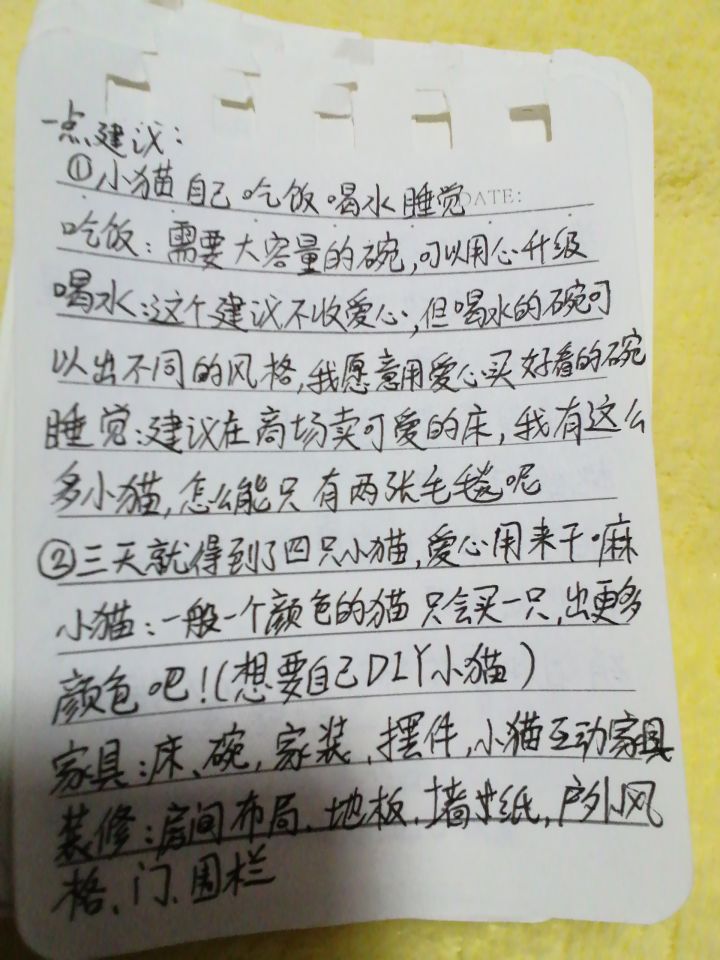 一点建议：
①小猫自己吃饭喝水睡觉 DATE:
吃饭：需要大容量的碗，可以用心升级
喝水：这个建议不收爱心，但喝水的碗可
以出不同的风格，我愿意用爱心买好看的碗
睡觉：建议在商场卖可爱的床，我有这么
多小猫，怎么能只有两张毛毯呢
②三天就得到了四只小猫，爱心用来干嘛
小猫：一般一个颜色的猫只会买一只，出更多
颜色吧！(想要自己DIY小猫)
家具：床、碗，家装，摆件，小猫互动家具
装修：房间布局、地板，墙纸，户外风
格、门、围栏